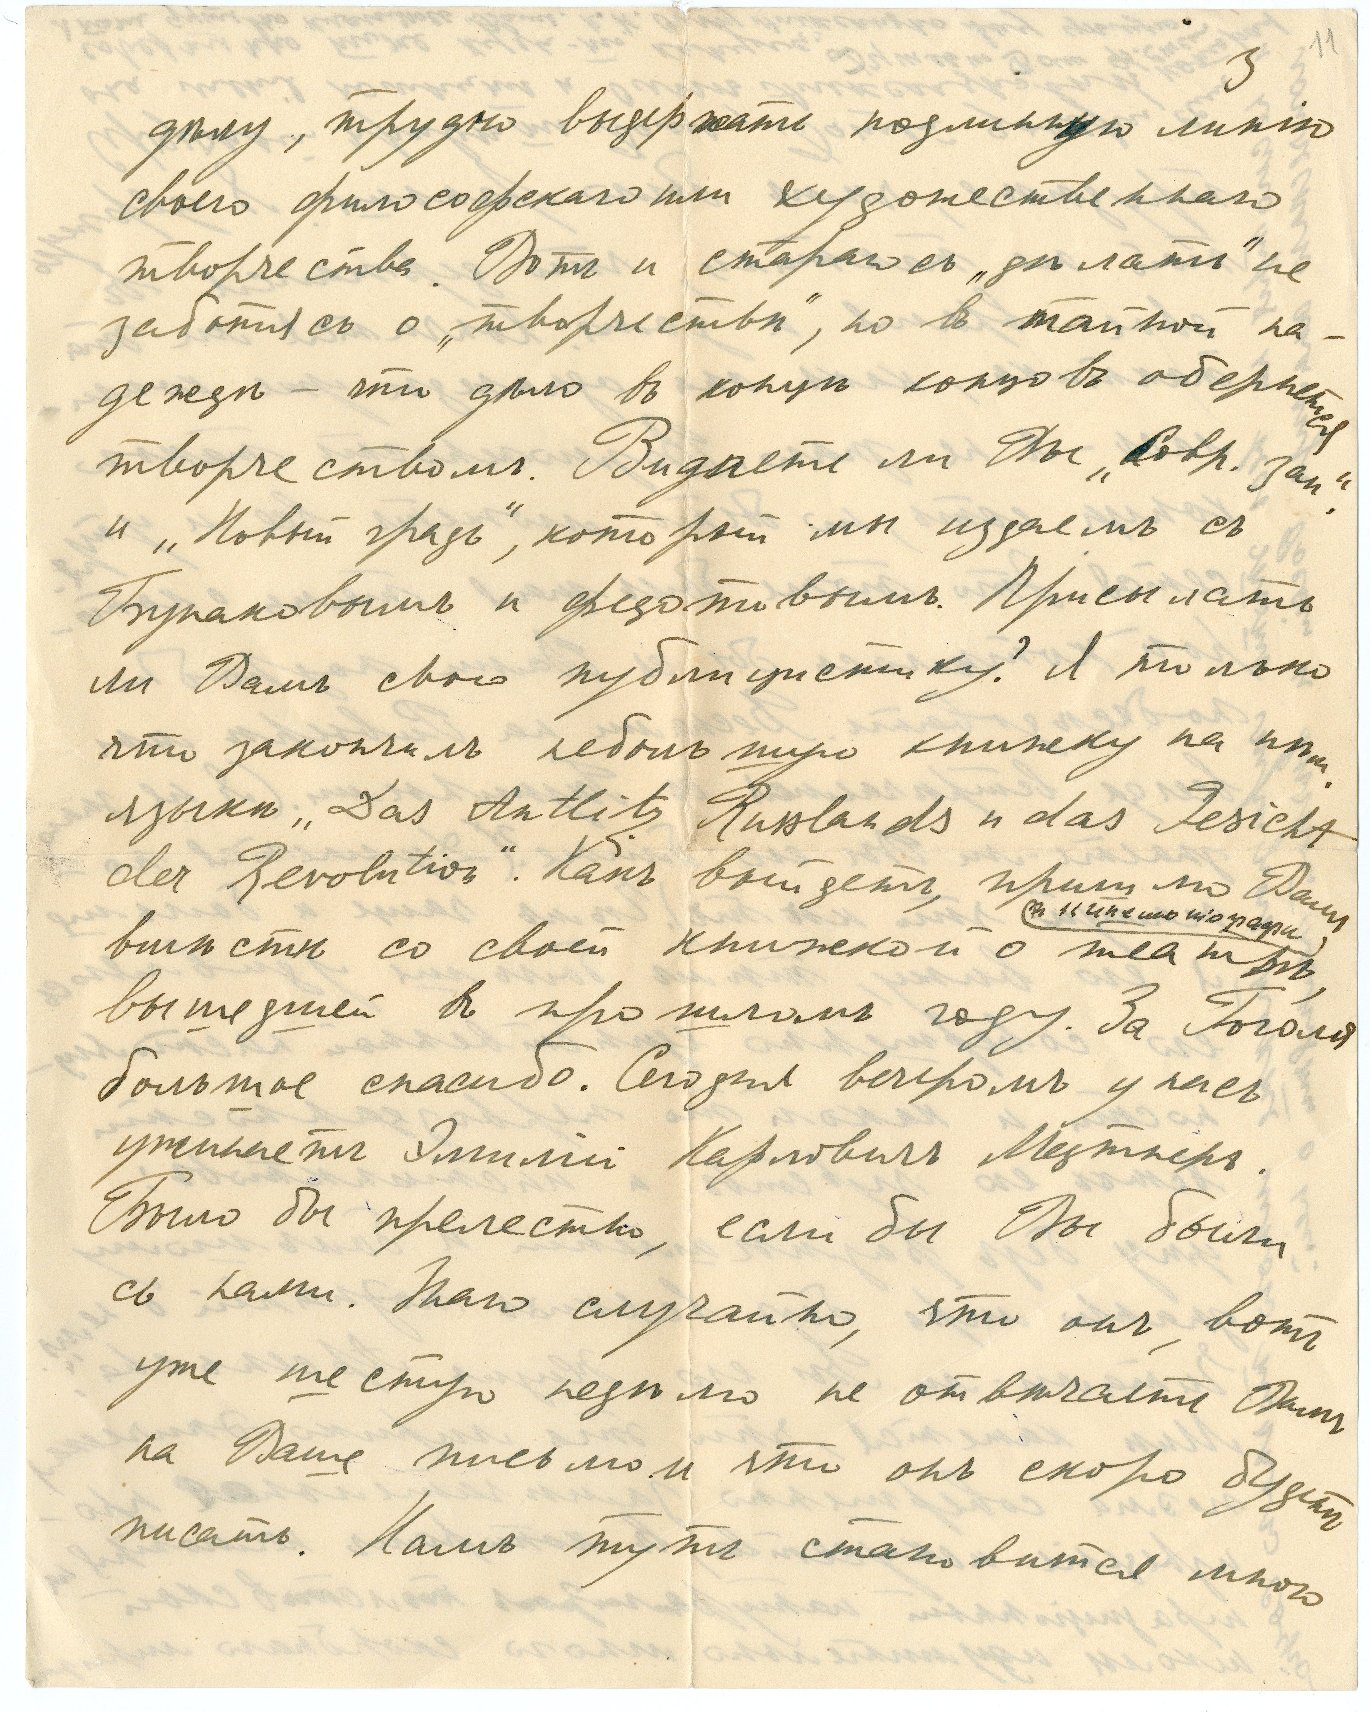 11
3
дѣлу, трудно выдержать подлинную линію
своего философскаго или художественнаго
творчества. Вотъ и стараюсь „дѣлать“ не
заботясь о „творчествѣ“, но въ тайной на-
деждѣ – что дѣло въ концѣ концовъ обернется
творчествомъ. Видаете ли Вы „Совр. зап.“
и „Новый градъ“, который мы издаемъ съ
Бунаковымъ и Федотовымъ. Присылать
ли Вамъ свою публицистику? Я только
что закончилъ небольшую книжку на нѣм.
языкѣ „Das Antlitz Russlands и das Gesicht
der Revolution“. Какъ выйдетъ, пришлю Вамъ
и кинематографѣ
вмѣстѣ со своей книжкой о театрѣ,
вышедшей въ прошломъ году. За Гоголя
большое спасибо. Сегодня вечеромъ у насъ
ужинаетъ Эмилій Карловичъ Метнеръ.
Было бы прелестно, если бы Вы были
съ нами. Знаю случайно, что онъ, вотъ
уже шестую недѣлю не отвѣчаетъ Вамъ
на Ваше письмо и что онъ скоро будетъ
писать. Намъ тутъ становится много